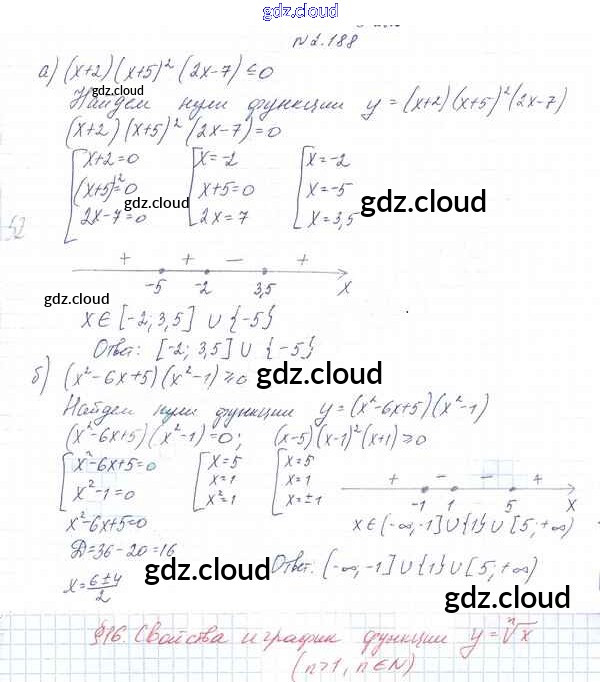 gdz.cloud
№2.188
а) (x+2)(x+5)²(2x-7)≤0
gdz.cloud
Найдем нули функции y=(x+2)(x+5)²(2x-7)
(x+2)(x+5)²(2x-7)=0
x+2=0 x=-2 x=-2
(x+5)²=0 x+5=0 x=-5
gdz.cloud gdz.cloud
2x-7=0 2x=7 x=3,5
52
+ + - +
-5 -2 3,5 x
gdz.cloud
x∈[-2;3,5]∪{-5}
Ответ: [-2; 3,5]∪{-5}
б) (x²-6x+5)(x²-1)≥0
gdz.cloud
Найдем нули функции y=(x²-6x+5)(x²-1)
(x²-6x+5)(x²-1)=0; (x-5)(x-1)²(x+1)≥0
x²-6x+5=0 x=5 x=5
x=1 x=1
x²-1=0 x²=1 x=±1
+ - - +
-1 1 5 x
x²-6x+5=0 x∈(-∞,-1]∪{1}∪[5,+∞)
D=36-20=16
Ответ: (-∞,-1]∪{1}∪[5,+∞)
x=6±4/2
gdz.cloud gdz.cloud
§16. Свойства и график функции y=ⁿ√x
(n>1, n∈N)